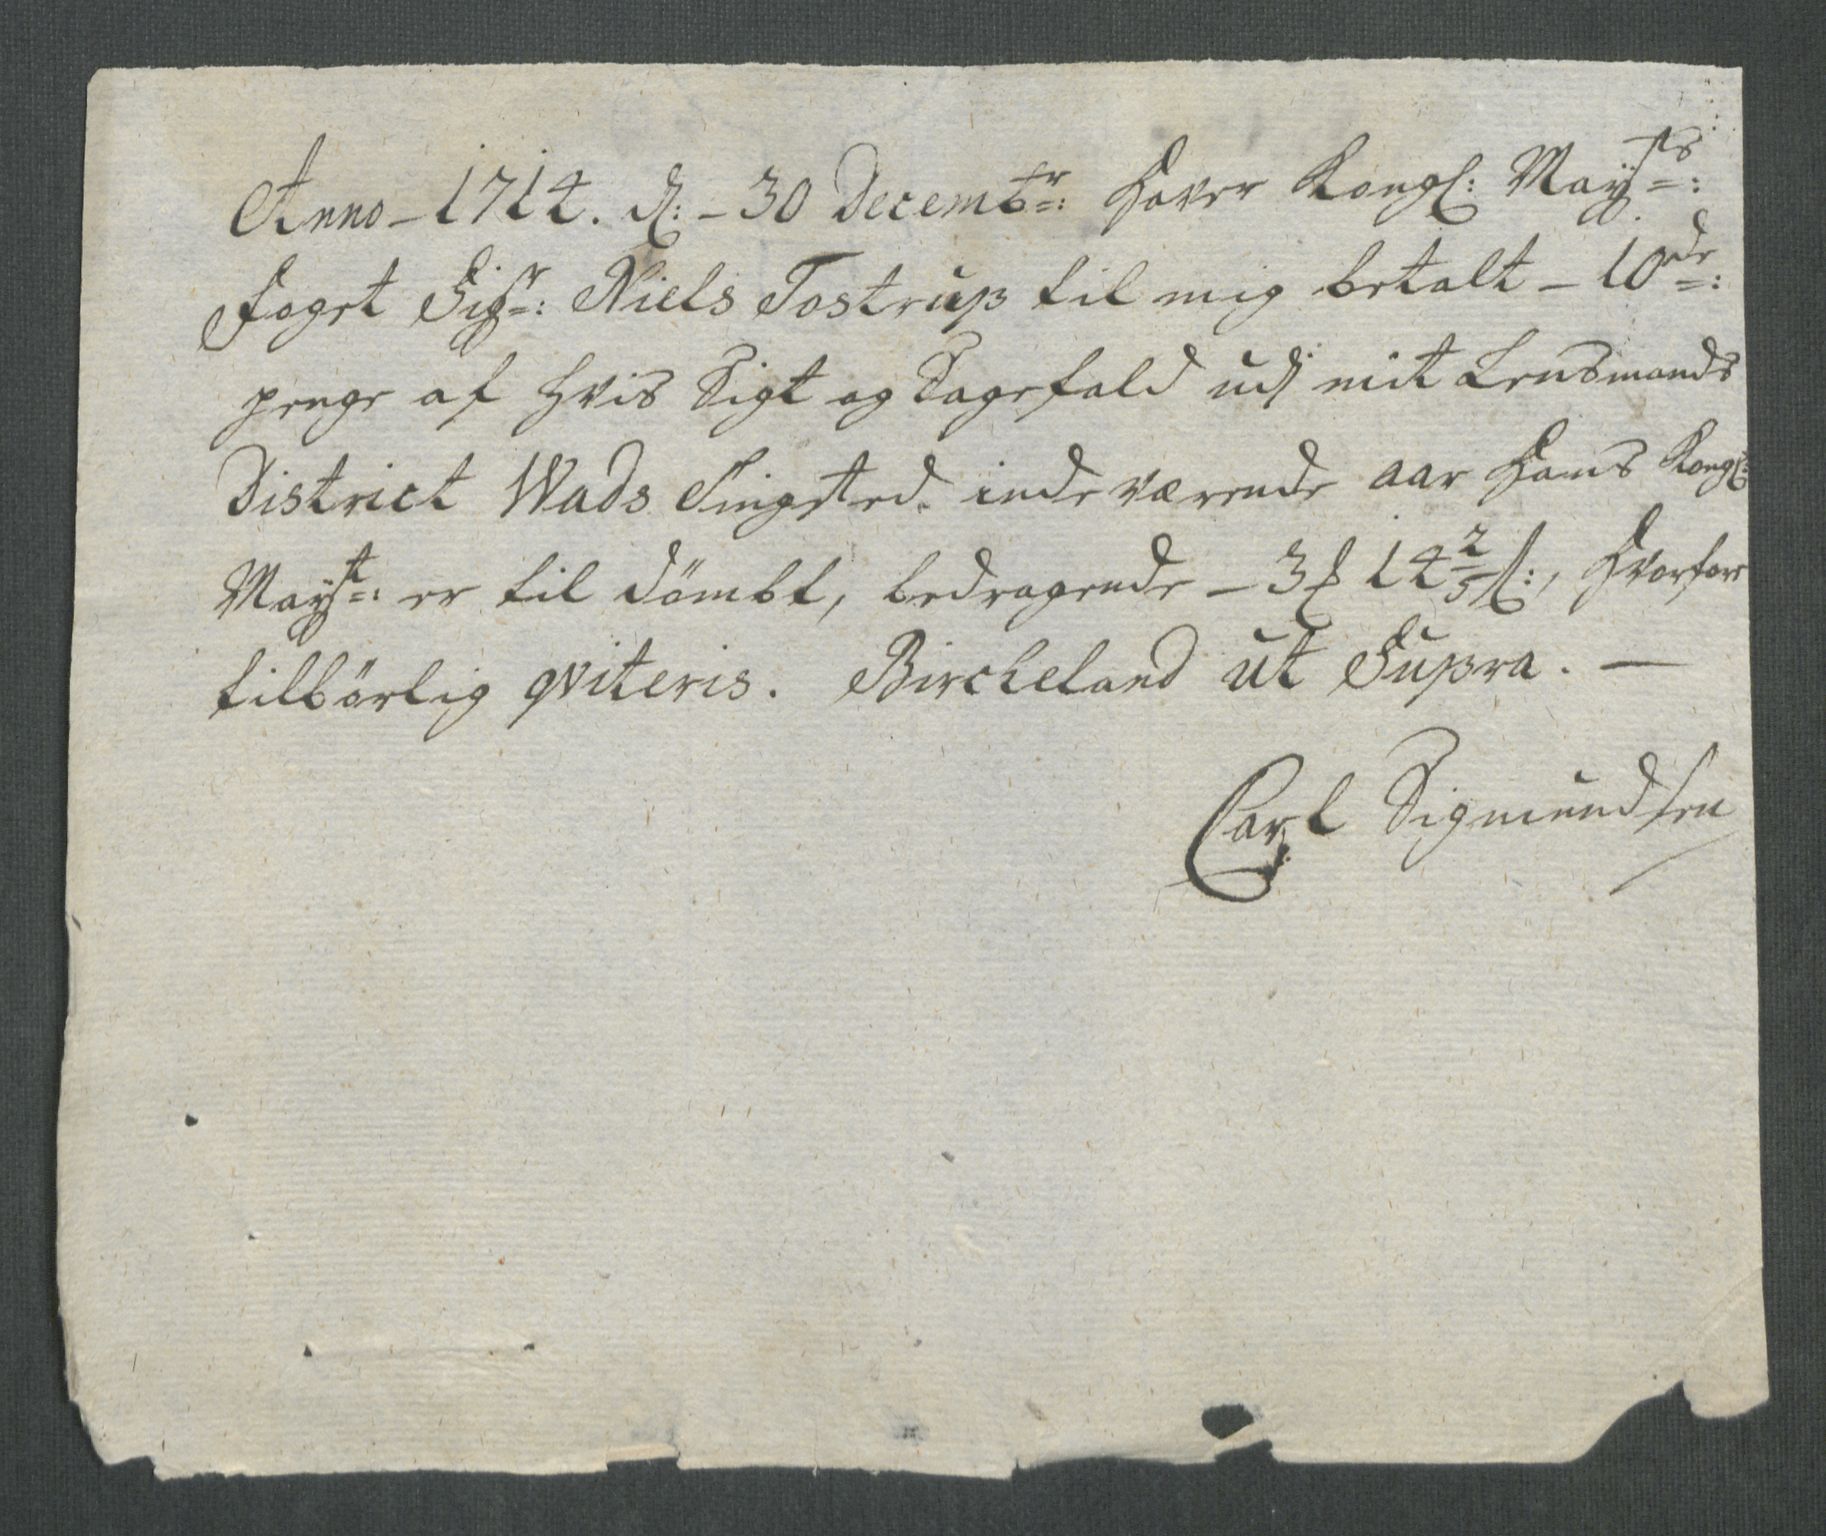 Anno - 1714. d: - 30 Decembr: Haver Kongl: Mayts:
Foget Sigr: Niels Tostrup til mig betalt - 10de:
penge af hvis Sigt og Sagefald udj mit Lensmands
District Wads Tingsted. indeværende aar Hans Kongl:
Mayt: er til dömbt, bedragende - 3 14 2/5 s:, hvorfore
tilbörlig qviteris. Bircheland ut Supra. —
Carl Sigmundsen